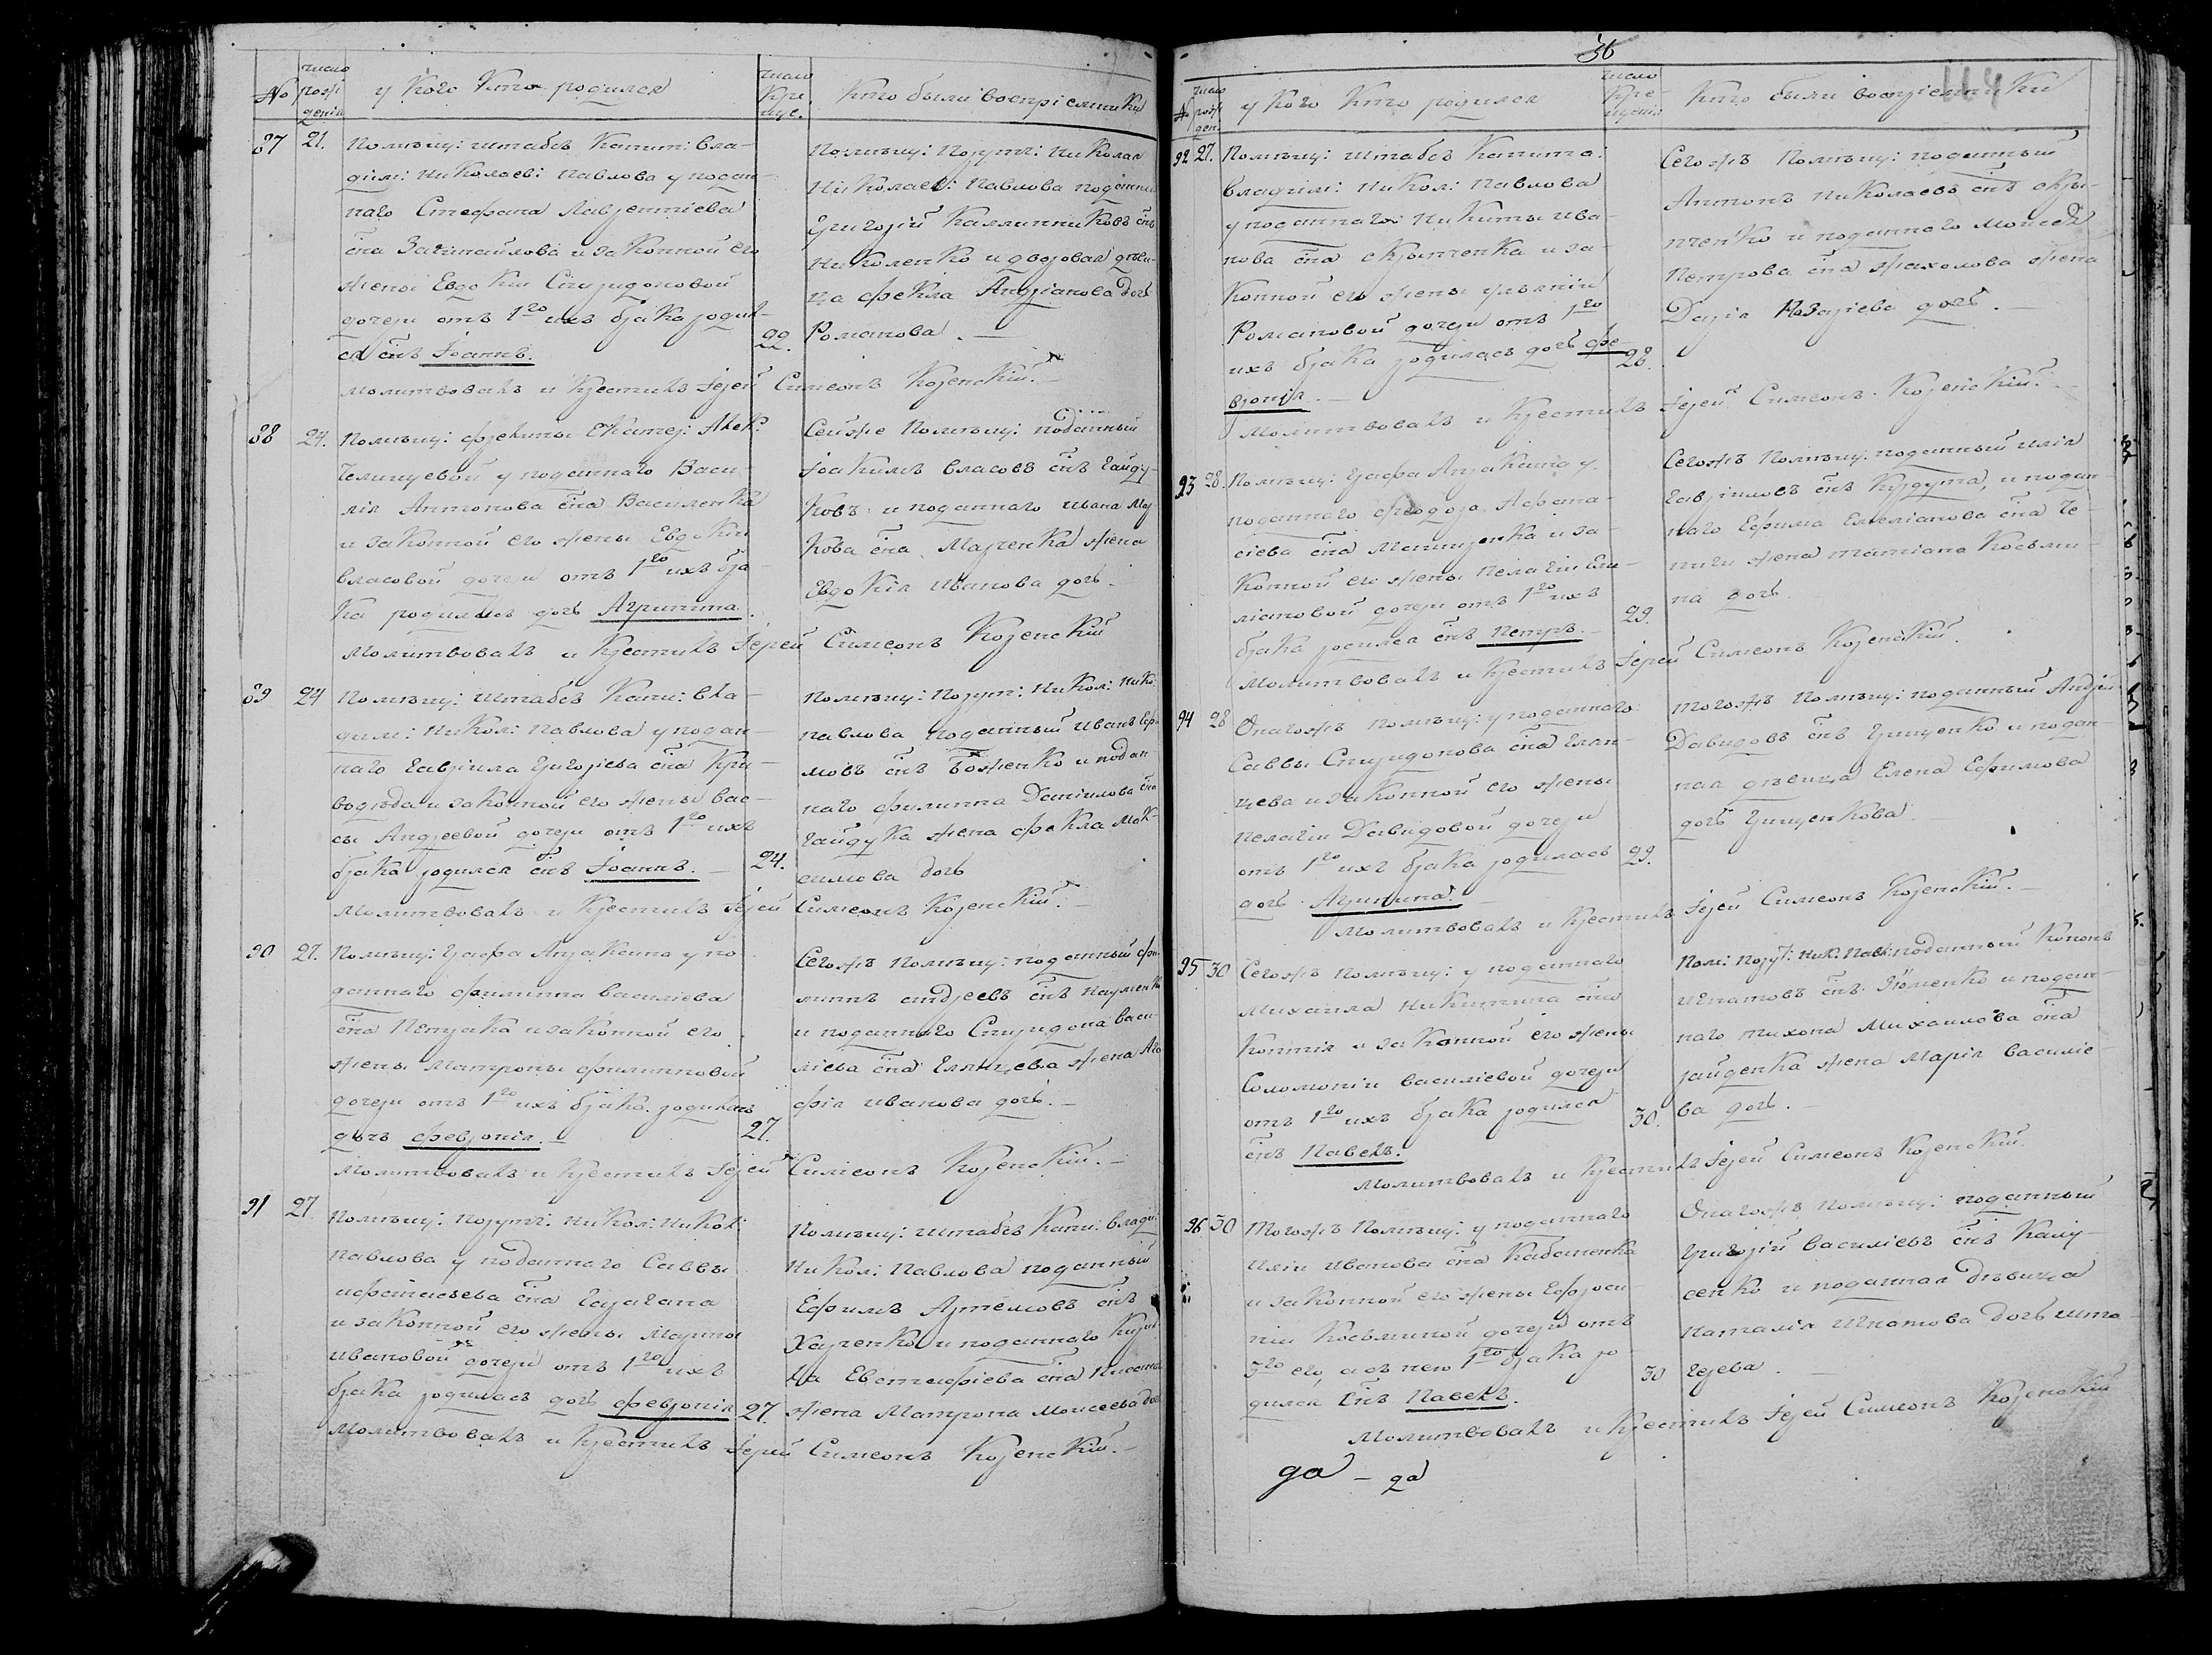 №
число рож-
денія
у Кого Кто родился
число
Кре
ще.
Кто были воспріемники
87 21. Помѣщ: штабсъ Капит: Вла-
дим: Николаеві Павлова у подан-
наго Стефана Лаврентіева
сна и законной его
жены Евдокіи Спиридоновой
дочери отъ 1го ихъ брака родил-
ся снъ Іоаннъ.
22.
Помѣщ: Поруч: Николая
Николаев: Павлова поданны
Григорій Каллинниковъ снъ
Николенко и дворовая дѣви-
ца Фекла Андріанова дочь
Романова.
молитвовалъ и Крестилъ Іерей Симеонъ Коренскій.
88 24. Помѣщ: Фрелины Екатер: Алек:
у поданнаго Васи-
лія Антонова сна Василенка
и законной его жены Евдокіи
Власовой дочери отъ 1го ихъ бра-
ка родилась дочь Агрипина.
Сейже Помѣщ: поданный
Іоакимъ Власовъ снъ Гайду-
ковъ и поданнаго Ивана Мар
кова сна Марченка жена
Евдокія Иванова дочь.
Молитвовалъ и Крестилъ Іерей Симеонъ Коренскій
89 24 Помѣщ: Штабсъ Капи: Вла-
дим: Никол: Павлова у подан-
наго Гавріила Григорієва сна Кри-
и законной его жены Вас-
сы Андреевой дочери отъ 1го ихъ
брака родился снъ Іоаннъ.
24.
Помѣщ: Поруч: Никол: Нико:
Павлова поданный Иванъ Ефи
мовъ снъ Боженко и подан
наго Филиппа Даніилова сна
Гайдука жена Фекла Мак-
симова дочь
Молитвовалъ и Крестилъ Іерей Симеонъ Коренскій.
90 27. Помѣщ: Графа Аракчина у по
даннаго Филиппа Василіева
сна Петрака и законной его
жены Матроны Филипповой
дочери отъ 1го ихъ брака родилась
дочь Февронія.
27.
Сегожъ Помѣщ: поданный Фи-
липпъ Андреевъ снъ Науменко
и поданнаго Спиридона Васи-
ліева сна жена Ага
фія Иванова дочь.
Молитвовалъ и Крестилъ Іерей Симеонъ Коренскій.
91 27 Помѣщ: Поруч: Никол: Никол:
Павлова у поданнаго Саввы
сна
и законной его жены Марины
Ивановой дочери отъ 1го ихъ
брака родилась дочь Февронія
27.
Помѣщ: штабсъ Капи: Влади:
Никол: Павлова поданный
Ефимъ Артемовъ снъ
Харченко и поданнаго Кирил
ла Евстафіева сна
жена Матрона Моисеева дочь
Молитвовалъ и Крестилъ Іерей Симеонъ Коренскій.
36
114
№
число
рож
ден.
у Кого Кто родился
число
Кре-
щенія
Кто были воспріемники
92 27. Помѣщ: Штабсъ Капита:
Владим: Никол: Павлова
у поданнаго Никиты Ива-
нова сна Скрыпченка и за-
конной его жены Ульяніи
Романовой дочери отъ 1го
ихъ брака родилась дочь Фе-
вронія.
28.
Сегожъ Помѣщ: поданный
Антонъ Николаевъ снъ Скры-
пченко и поданнаго Моисея
Петрова сна жена
Дарія Назаріева дочь.
Молитвовалъ и Крестилъ Іерей Симеонъ Коренскій.
93 28. Помѣщ: Графа Аракчина у
поданнаго Феодора Афана-
сіева сна и за-
конной его жены Пелагіи
дочери отъ 1го ихъ
брака родился снъ Петръ.
29.
Сегожъ Помѣщ. поданный Илія
Гавріиловъ снъ и подан-
наго Ефима Емеліанова сна Че-
жена Татіана Косьми-
на дочь.
Молитвовалъ и Крестилъ Іерей Симеонъ Коренскій.
94 28 Онагожъ помѣщ: у поданнаго
Саввы Спиридонова сна
и законной его жены
Пелагіи Давидовой дочери
отъ 1го ихъ брака родилась
дочь Агрипина.
29.
Тогожъ Помѣщ: поданный Андрей
Давидовъ снъ Грищенко и подан-
ная дѣвица Елена Ефимова
дочь Грищенкова.
Молитвовалъ и Крестилъ Іерей Симеонъ Коренскій.
95 30 Сегожъ помѣщ: у поданнаго
Михаила Никитина сна
и законной его жены
Соломоніи Василіевой дочери
отъ 1го ихъ брака родился
снъ Павелъ.
30.
Пом: Поруч: Ник: Павл: поданный Кононъ
Игнатовъ снъ и подан-
наго Тихона Михаилова сна
жена Марія Василіе
ва дочь.
Молитвовалъ и Крестилъ Іерей Симеонъ Коренскій.
96 30 Тогожъ Помѣщ: у поданнаго
Иліи Иванова сна Кабаченка
и законной его жены Ефроси
ніи Косьминой дочери отъ
3го его, а съ нею 1го брака ро
дился снъ Павелъ.
30
Онагожъ Помѣщ: поданный
Григорій Василіевъ снъ
и поданная дѣвица
Наталія Игнатова дочь

Молитвовалъ и Крестилъ Іерей Симеонъ Коренскій
да - да